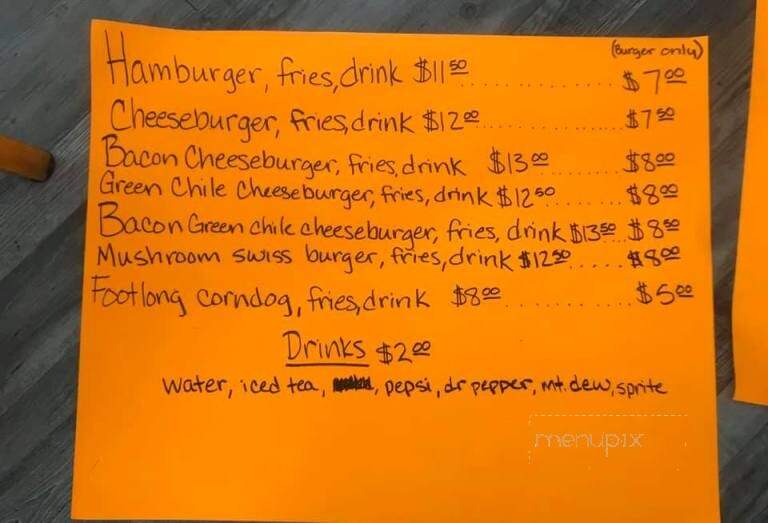 (Burger only)
Hamburger, fries, drink $11 50 .................. $7 00
Cheeseburger, fries, drink $12 00 .................. $7 50
Bacon Cheeseburger, fries, drink $13 00 $8 00
Green Chile Cheeseburger, fries, drink $12 50 ...... $8 00
Bacon Green chile cheeseburger, fries, drink $13 50 $8 50
Mushroom swiss burger, fries, drink $12 50 ...... $8 00
Footlong corndog, fries, drink $8 00 .............. $5 00
Drinks $2 00
Water, iced tea, , pepsi, dr pepper, mt. dew, sprite
menupix